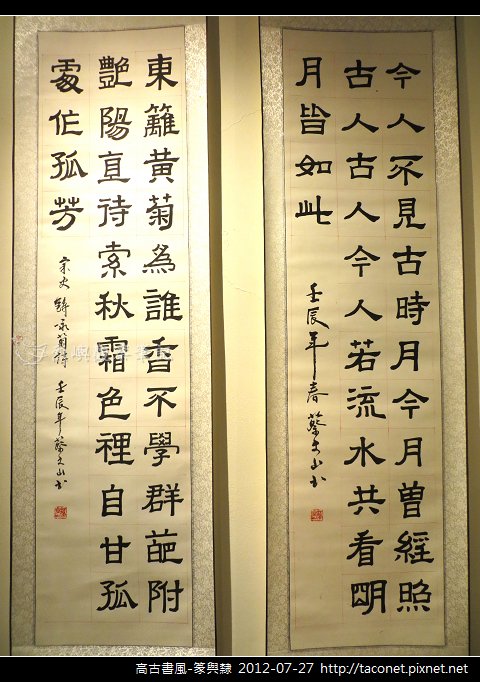 今人不見古時月今月曾經照
古人古人今人若流水共看明
月皆如此
壬辰年春蔡文山書
東籬黃菊為誰香不學群葩附
艷陽直待素秋霜色裡自甘孤
處作孤芳
宋史鑄詠菊詩 壬辰年蔡文山書
高古書風-篆與隸 2012-07-27 http://taconet.pixnet.net